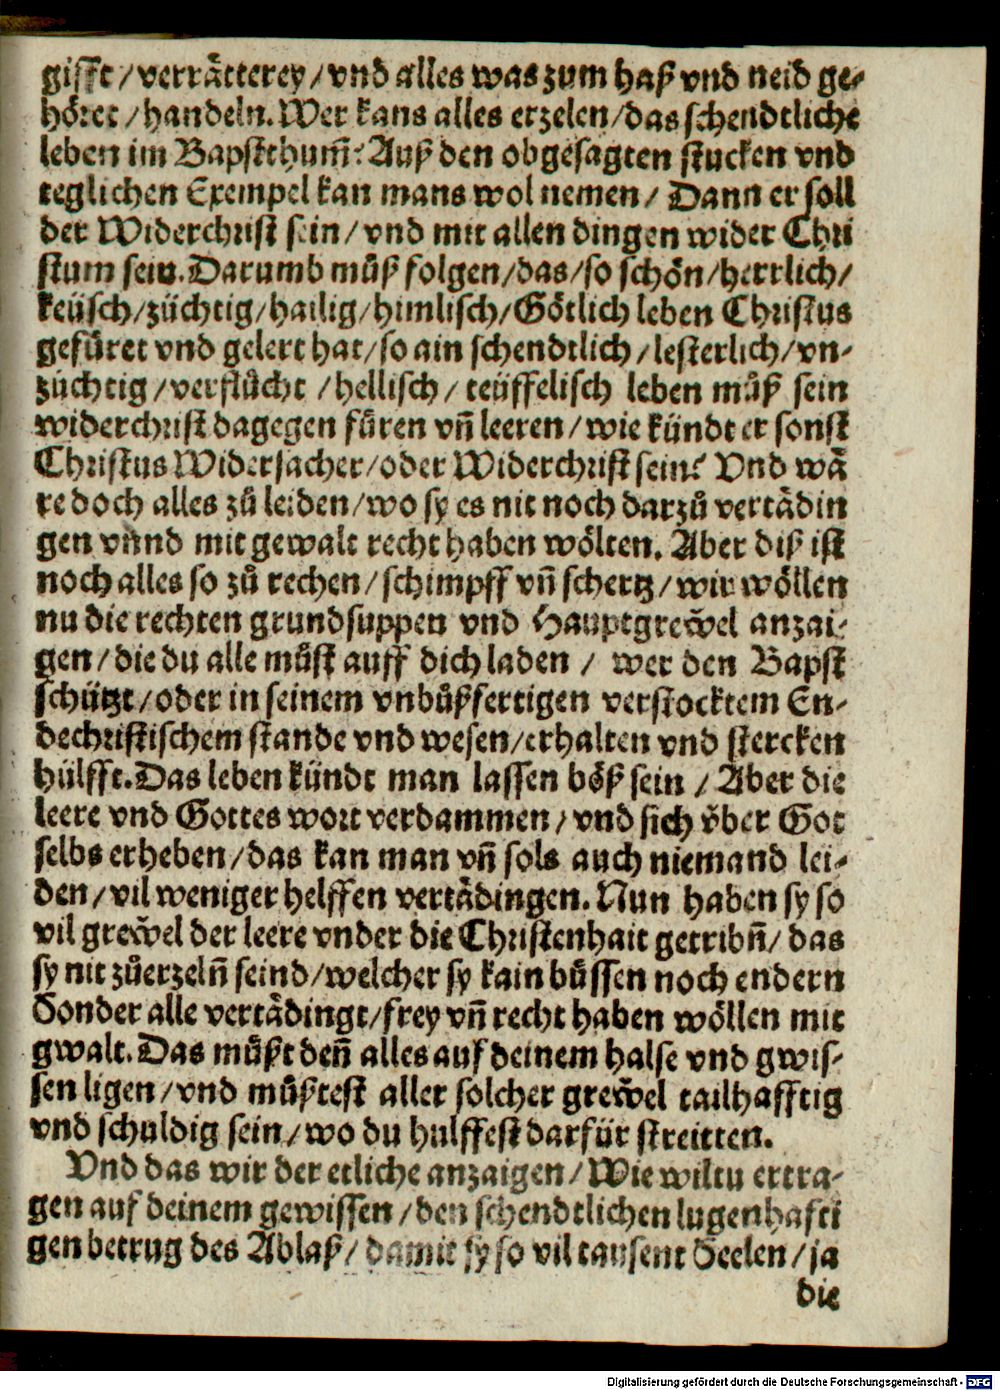 gifft / verrätterey / vnd alles was zum haß vnd neid ge-
höret / handeln. Wer kans alles erzelen / das schendtliche
leben im Bapstthum̃? Auß den obgesagten stucken vnd
teglichen Exempel kan mans wol nemen / Dann er soll
der Widerchrist sein / vnd mit allen dingen wider Chri
stum sein. Darumb můß folgen / das / so schön / herrlich /
keüsch / züchtig / hailig / himlisch / Götlich leben Christus
gefůret vnd gelert hat / so ain schendtlich / lesterlich / vn-
züchtig / verflůcht / hellisch / teüffelisch leben můß sein
widerchrist dagegen fůren vñ leeren / wie kündt er sonst
Christus Widersacher / oder Widerchrist sein? Vnd wå
re doch alles zů leiden / wo sy es nit noch darzů vertådin
gen vnnd mit gewalt recht haben wölten. Aber diß ist
noch alles so zů rechen / schimpff vñ schertz / wir wöllen
nu die rechten grundsuppen vnd Hauptgrewel anzai-
gen / die du alle můst auff dich laden / wer den Bapst
schützt / oder in seinem vnbůßfertigen verstocktem En-
dechristischem stande vnd wesen / erhalten vnd stercken
hülfft. Das leben kündt man lassen böß sein / Aber die
leere vnd Gottes wort verdammen / vnd sich vͤber Got
selbs erheben / das kan man vñ sols auch niemand lei-
den / vil weniger helffen vertådingen. Nun haben sy so
vil grewel der leere vnder die Christenhait getribñ / das
sy nit zůerzelñ seind / welcher sy kain bůssen noch endern
Sonder alle vertådingt / frey vñ recht haben wöllen mit
gwalt. Das můßt deñ alles auf deinem halse vnd gwis-
sen ligen / vnd můßtest aller solcher grewel tailhafftig
vnd schuldig sein / wo du hulffest darfür streitten.
Vnd das wir der etliche anzaigen / Wie wiltu ertra-
gen auf deinem gewissen / den schendtlichen lugenhafti
gen betrug des Ablaß / damit sy so vil tausent Seelen / ja
die
Digitalisierung gefördert durch die Deutsche Forschungsgemeinschaft - DFG